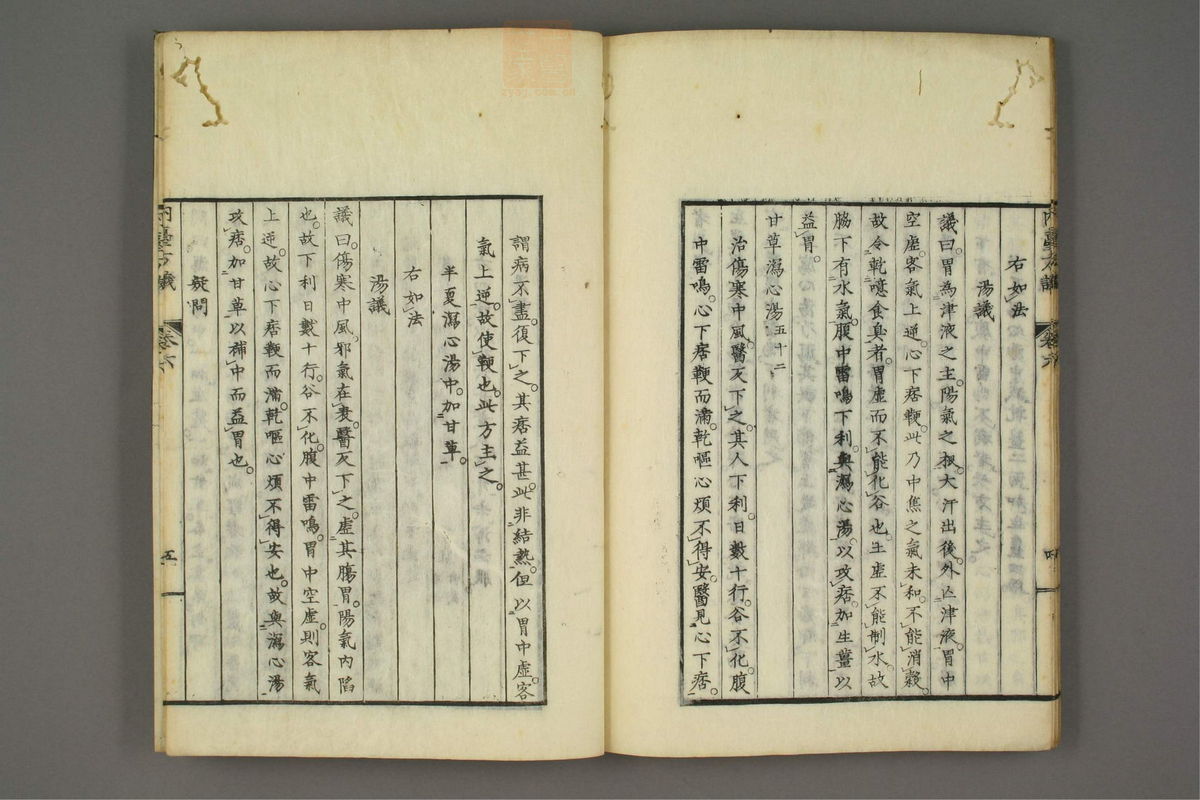 內臺方議 卷六
右如法
湯議
議曰。胃為津液之主。陽氣之根。大汗出後。外亡津液。胃中
空虛。客氣上逆。心下痞鞕。此乃中焦之氣未和。不能消穀。
故令乾噫食臭者。胃虛而不能化谷也。土虛不能制水。故
脇下有水氣。腹中雷鳴下利。與瀉心湯。以攻痞加生薑以
益胃。
甘草瀉心湯五十二
治傷寒中風。醫反下之。其人下利。日數十行。谷不化。腹
中雷鳴。心下痞鞕而滿。乾嘔心煩不得安。醫見心下痞。
謂病不盡。復下之。其痞益甚。此非結熱。但以胃中虛。客
氣上逆。故使鞕也。此方主之。
半夏瀉心湯中。加甘草。
右如法
湯議
議曰。傷寒中風。邪氣在表。醫反下之。虛其腸胃。陽氣內陷
也。故下利日數十行。谷不化。腹中雷鳴。胃中空虛。則客氣
上逆。故心下痞鞕而滿。乾嘔心煩不得安也。故與瀉心湯
攻痞。加甘草以補中而益胃也。
疑問
內臺方議 卷六 五